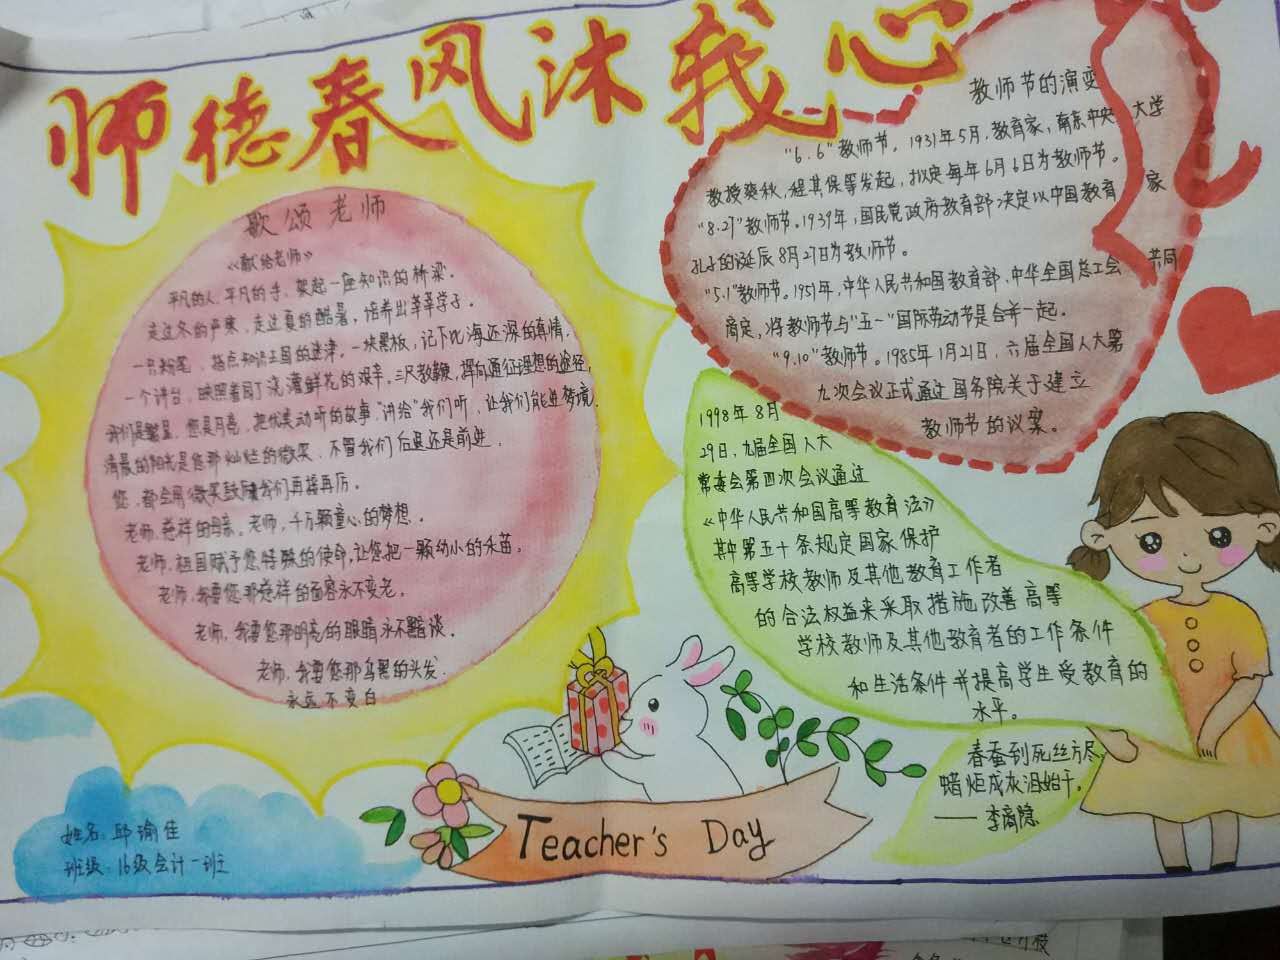 师德春风沐我心
歌颂老师
《献给老师》
平凡的人,平凡的手,架起一座知识的桥梁。
走过冬的严寒,走过夏的酷暑,培养出莘莘学子。
一只粉笔,指点知识王国的迷津。一块黑板,记下比海还深的真情.
一个讲台,映照着园丁浇灌鲜花的艰辛。三尺教鞭,挥向通征理想的途径,
我们是繁星,您是月亮,把优美动听的故事"讲给"我们听,让我们能进梦境.
清晨的阳光是您那灿烂的微笑,不管我们后退还是前进,
您,都会用微笑鼓励我们再接再厉。
老师,慈祥的母亲。老师,千万颗童心的梦想。
老师,祖国赋予您特殊的使命,让您把一颗幼小的禾苗,
老师,我要您那慈祥的面容永不变老。
老师,我要您那明亮的眼睛永不黯谈。
老师,我要您那乌黑的头发.
永远不变白
姓名:邱瑜佳
班级:16级会计一班
教师节的演变
"6.6"教师节。1931年5月,教育家,南京中央大学
教授爽秋,程其保等发起,拟定每年6月6日为教师节。
"8.27"教师节。1939年,国民党政府教育部决定以中国教育家
孔子的诞辰8月27日为教师节。
"5.1"教师节。1951年,中华人民共和国教育部,中华全国总工会共同
商定,将教师节与"五一"国际劳动节是合并一起。
"9.10"教师节。1985年1月21日,六届全国人大第
九次会议正式通过国务院关于建立
教师节的议案。
1998年8月
29日,九届全国人大
常委会第四次会议通过
《中华人民共和国高等教育法》
其中第五十条规定国家保护
高等学校教师及其他教育工作者
的合法权益来采取措施改善高等
学校教师及其他教育者的工作条件
和生活条件并提高学生受教育的
水平。
春蚕到死丝方尽,
蜡炬成灰泪始干。
——李商隐
Teacher's Day